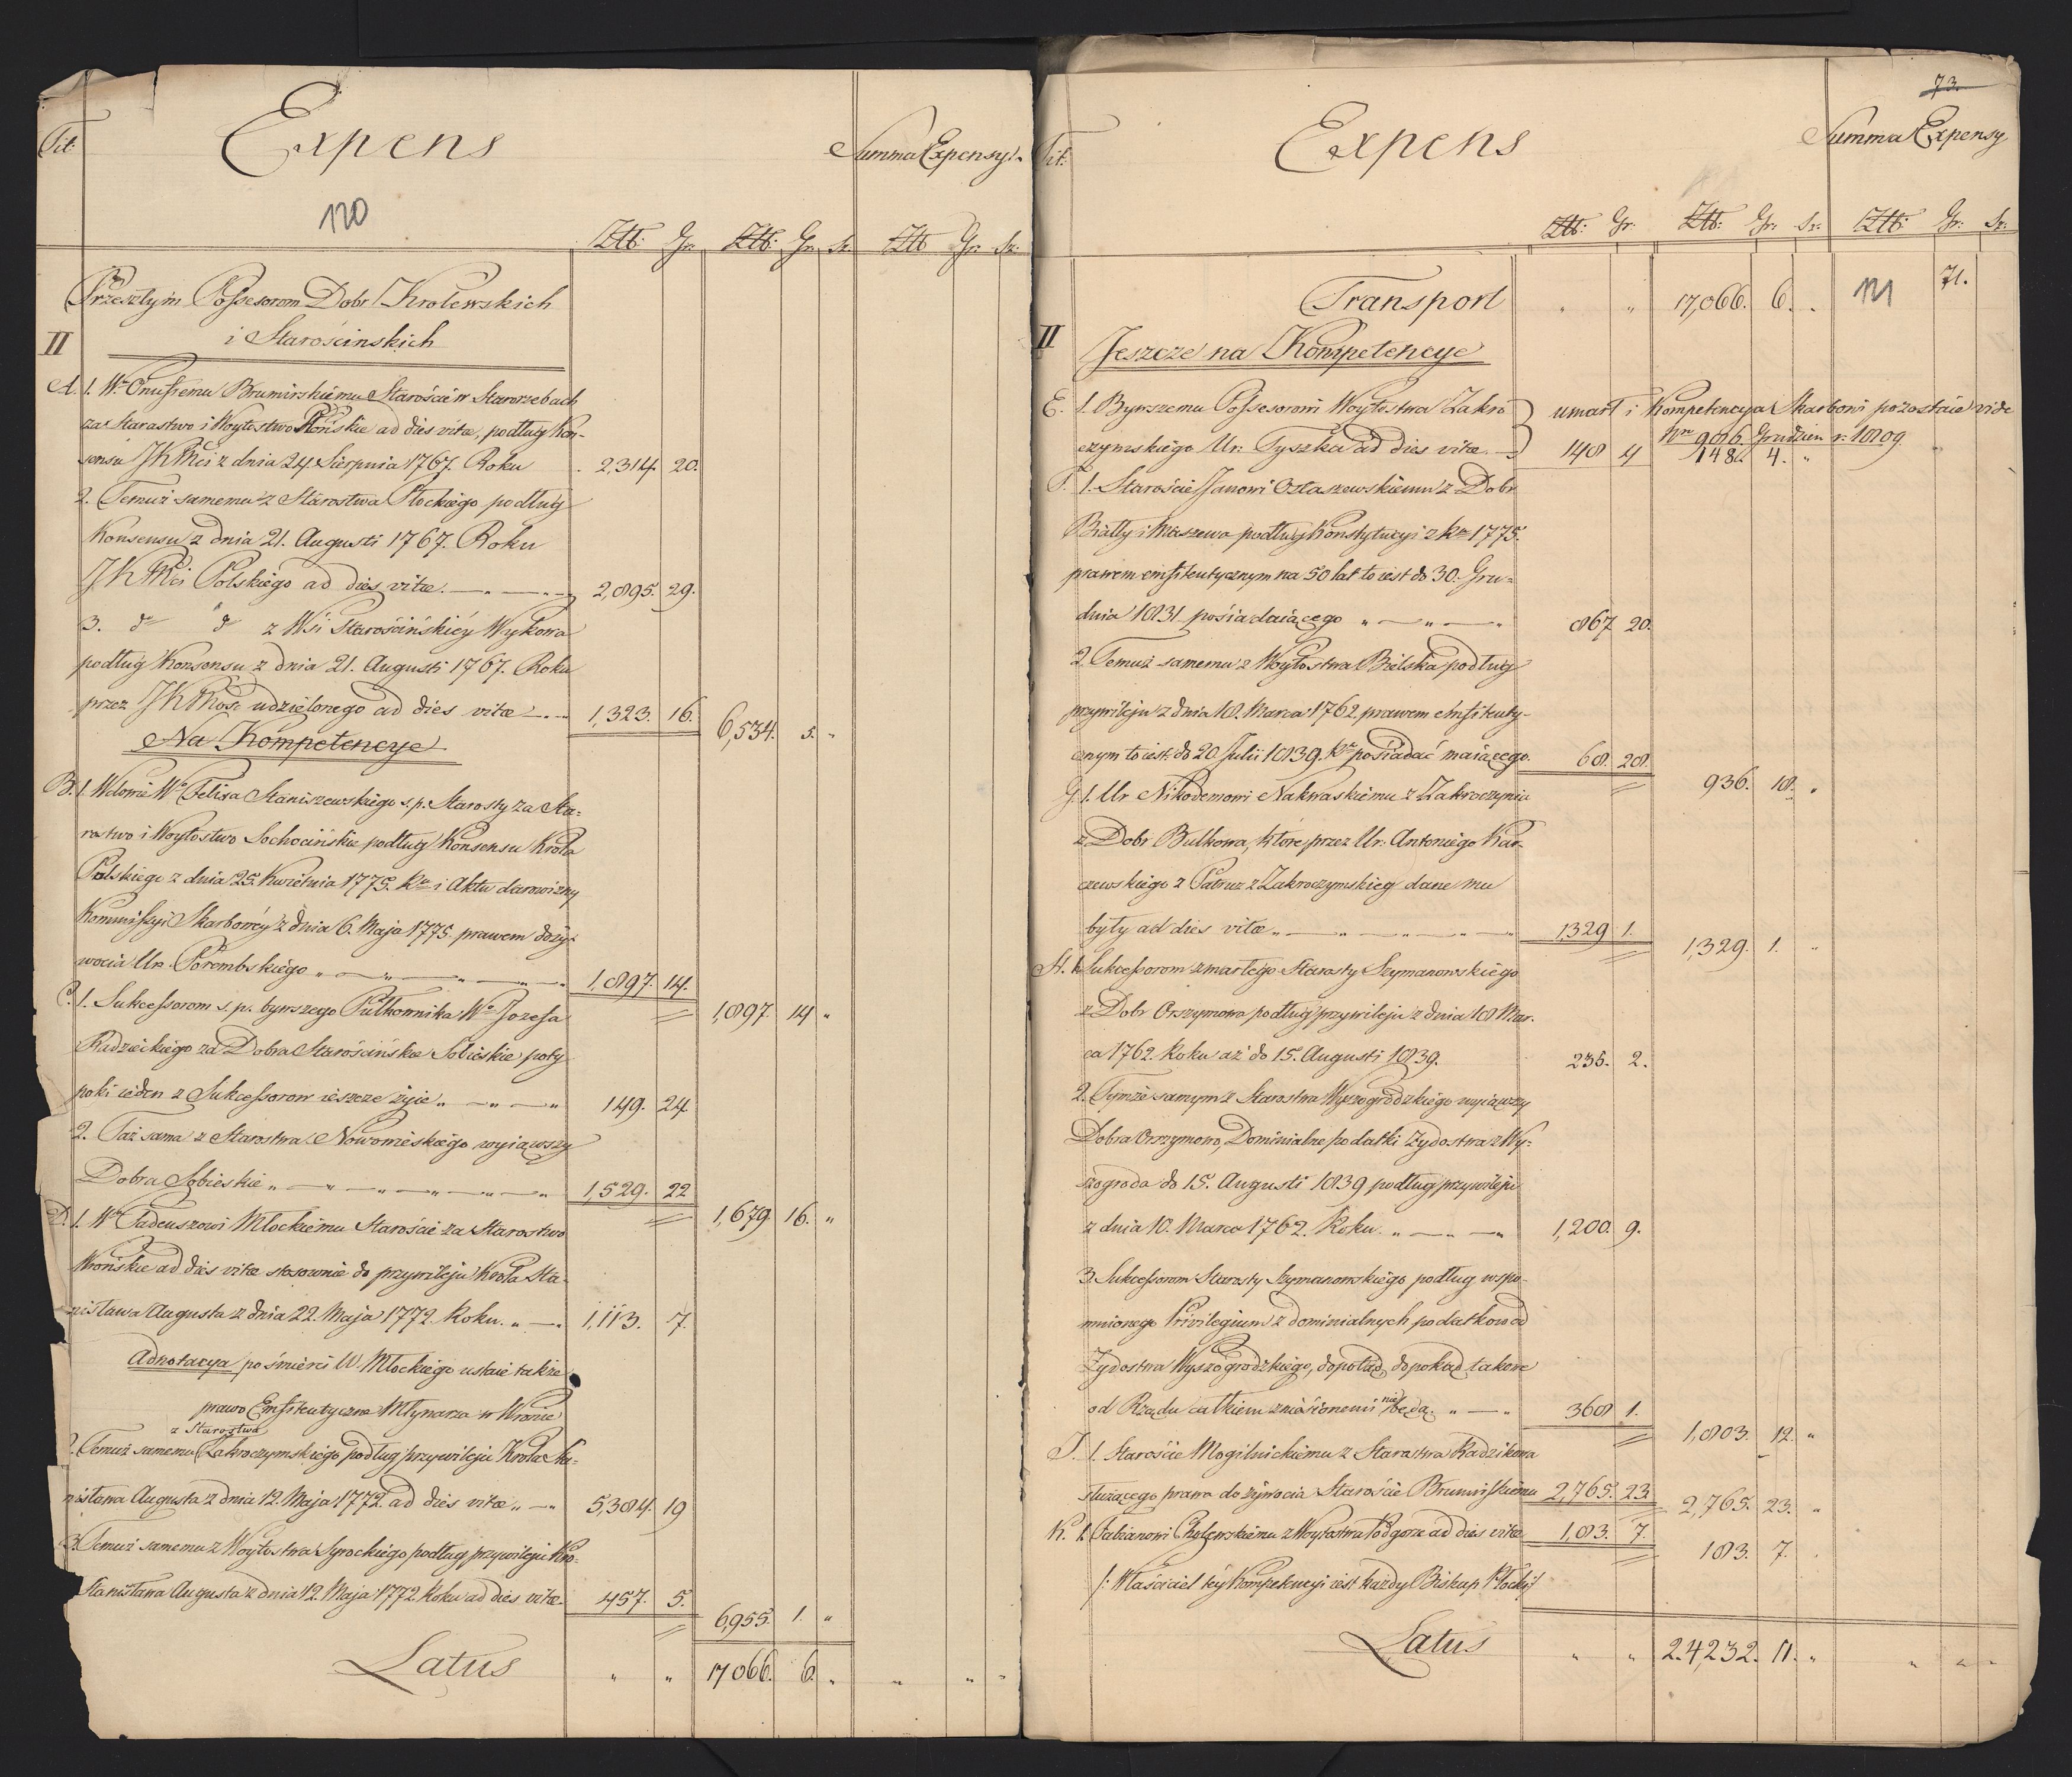 Tit:
Expens
Summa Expensy.
120
Ztt: Gr. Ztt: Gr. Sz. Ztt Gr: Sz:
Przeszłym Possesorom Dobr Krolewskich
II
i Starościnskich
A. 1. Wu Onufremu Brumirskiemu Starościé w Starorzebach
za Starastwo i Woytostwo Płońskie ad dies vitæ, podług Kon-
sensu JKMci z dnia 24. Sierpnia 1767. Roku 2,314. 20.
2. Temuż samemu z Starostwa Płockiego podług
Konsensu z dnia 21. Augusti 1767. Roku
JKMci Polskiego ad dies vitæ. 2,895. 29.
3. do do z Wsi Starościńskiéy Wykowa
podług Konsensu z dnia 21. Augusti 1767. Roku
przez JKMość udzielonego ad dies vitæ 1,323. 16. 6,534. 5. "
Na Kompetencye
B. 1. Wdowie Wo Felixa Staniszewskiego s. p. Starosty za Sta-
rostwo i Woytostwo Sochocińskie podług Konsensu Krola
Polskiego z dnia 25. Kwietnia 1775. Ru i Aktu darowizny
Kommissyi Skarbowéy z dnia 6. Maja 1775. prawem doży-
wocia Ur. Porembskiego " 1,897. 14.
C. 1. Sukcessorom s. p. bywszego Pułkownika Wo Jozefa 1,897. 14 "
Radzieckiego za Dobra Starościńskie Sobieskie poty
poki ieden z Sukcessorow ieszcze żyie " 149. 24
2. Taż sama z Starostwa Nowomieskiego wyiąwszy
Dobra Sobieskie " 1,529. 22
D. 1. Wu Tadeuszowi Młockiemu Starościé za Starostwo 1,679 16. "
Wrońskie ad dies vitæ stosownie do przywileju Krola Sta-
nisława Augusta z dnia 22. Maja 1772. Roku. " 1,113. 7.
Adnotacya po śmierci W. Młockiego ustaie także
prawo Emfiteutyczne Młynarza w Wronie
z Starostwa
2. Temuż samemu Zakroczymskiego podług przywileju Krola Sta-
nisława Augusta z dnia 12. Maja 1772. ad dies vitæ " 5,384. 19
3. Temuż samemu z Woytostwa Syrockiego podług przywileju Kro-
Stanisława Augusta z dnia 12. Maja 1772. Roku ad dies vitæ. 457. 5.
6,955. 1. "
Latus " " 17066. 6. " " " "
73.
Tit:
Expens
Summa Expensy
Ztt: Gr. Ztt: Gr: Sz: Ztt: Gr: Sz:
Transport " " 17,066. 6. " 121 71.
II
Jeszcze na Kompetencye
E. 1. Bywszemu Possesorowi Woytostwa Zakro- umarł i Kompetencya Skarbowi pozostaie vide
Nro 986. Grudzien r. 1809.
czymskiego Ur: Tyszka ad dies vitæ. 148 4 148. 4. "
F. 1. Starościé Janowi Ostaszewskiemu z Dobr
Biały i Maszewa podług Konstytucyi z Ru 1775.
prawem emfiteutycznym na 50 lat to iest do 30. Gru-
dnia 1831. posiadaiącego " 867 20.
2. Temuż samemu z Woytostwa Bielska podług
przywileju z dnia 18. Marca 1762. prawem emfiteuty-
cznym to iest: do 20. Julii 1839. Ru posiadać maiącego. 68. 28.
G. 1. Ur Nikodemowi Nakwaskiemu z Zakroczymia 936. 18. "
z Dobr Bulkowa, ktore przez Ur: Antoniego Kar-
czewskiego z Patruz z Zakroczymskieg dane mu
były ad dies vitæ " 1329 1. 1,329. 1. "
H. 1. Sukcessorom zmarłego Starosty Szymanowskiego
z Dobr Orszymowa podług przywileju z dnia 18 Mar-
ca 1762. Roku aż do 15. Augusti 1839. 235. 2.
2. Tymże samym z Starostwa Wyszogrodzkiego wyiąwszy
Dobra Orszymowo, Dominialne podatki Żydostwa z Wy-
szogroda do 15. Augusti 1839 podług przywileju
z dnia 10. Marca 1762. Roku. " 1,200. 9.
3. Sukcessorom Starosty Szymanowskiego podług wspo-
mnionego Privilegium z dominialnych podatkow od
Żydostwa Wyszogrodzkiego, dopotąd, dopokąd takowe
od Rządu całkiem znieśionemi nie będą. " 368 1.
1,803. 12. "
J. 1. Starościé Mogilnickiemu z Starostwa Radzikowa
służącego prawa dożywocia Starościé Brumirskiému 2,765. 23. 2,765. 23. "
K. 1. Fabianowi Cholewskiému z Woytostwa Podgorze ad dies vitæ 1,83. 7.
183. 7.
/: Właściciel téy Kompetencyi iest każdy Biskup Płocki:/
Latus " " 24,232. 11. " " " "